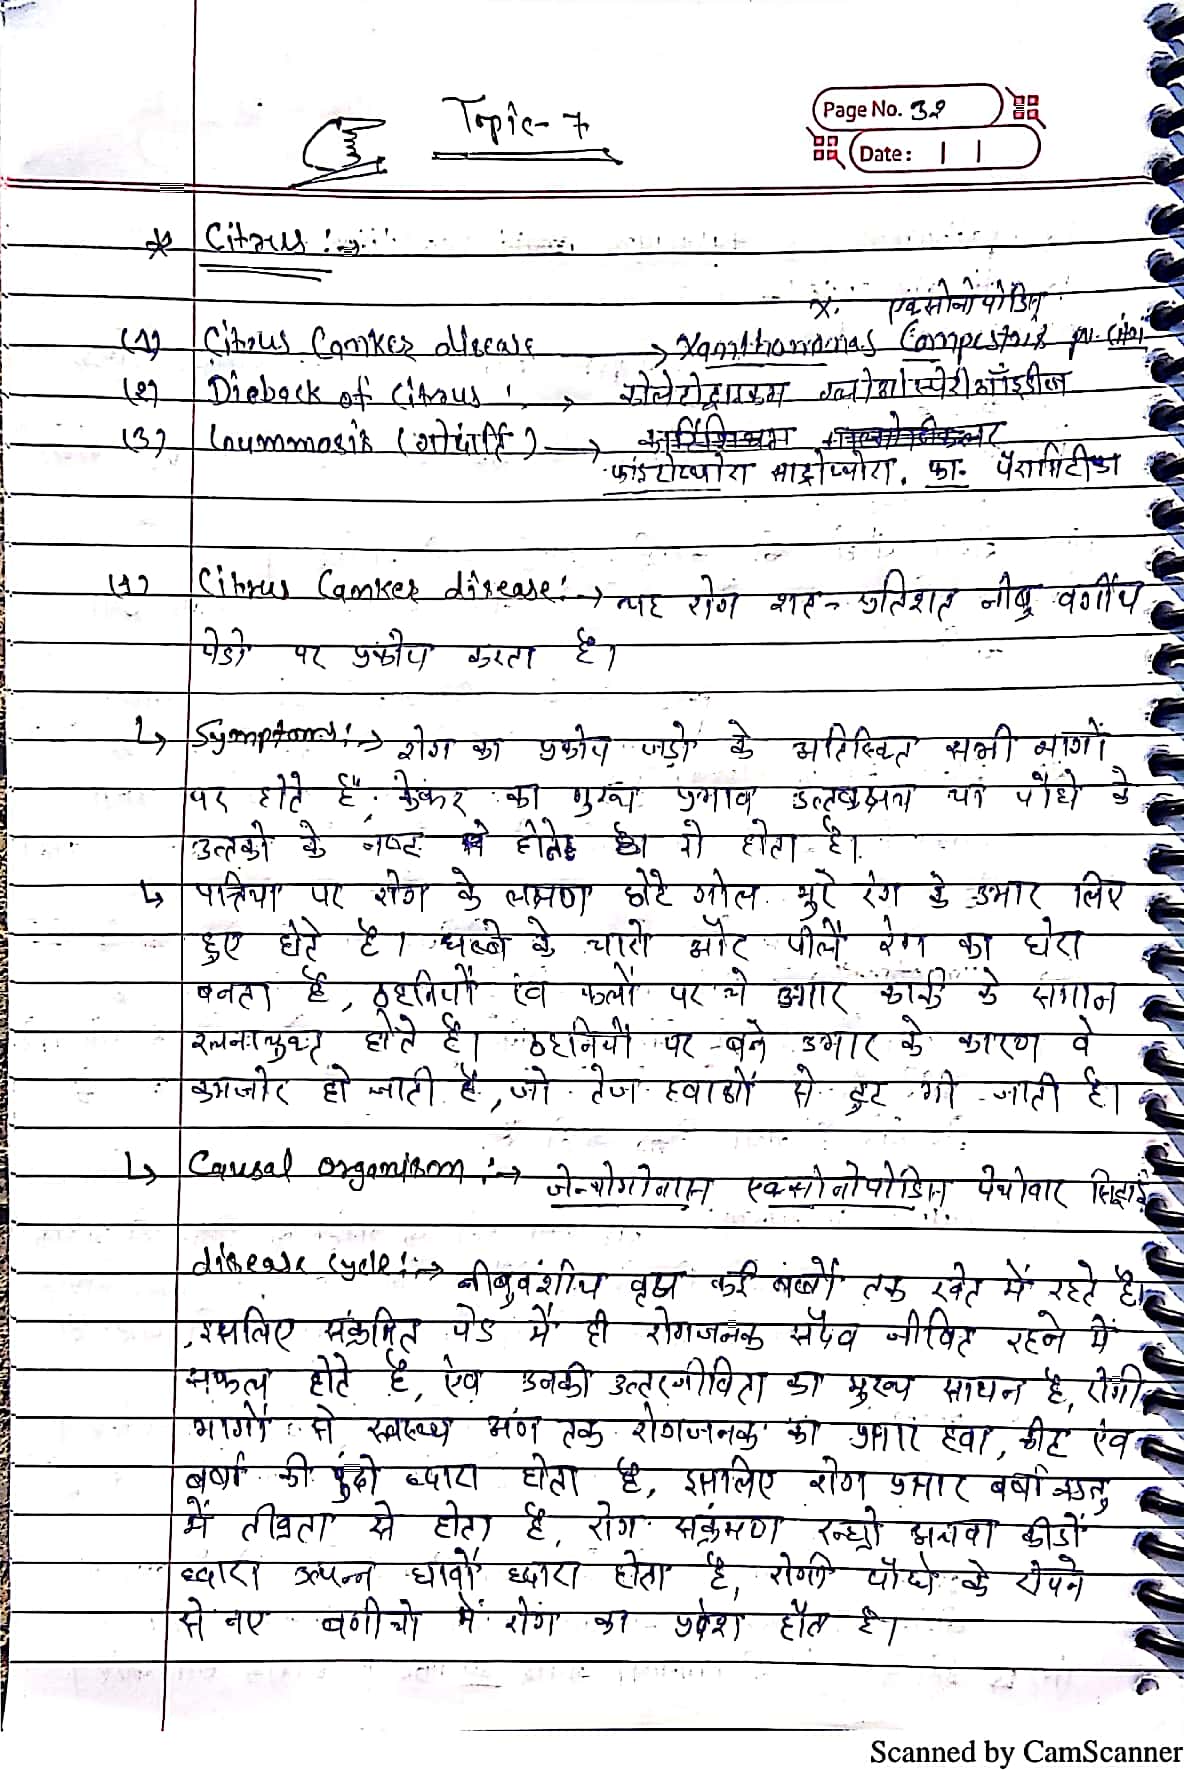 Topic- 7
Page No. 32
Date: | |
* Citrus :→
X. एक्सोनोपोडिस
(1) Citrus Canker disease → Xanthomonas Compestris pv. citri
(2) Dieback of Citrus : → कोलेटोट्राइकम ग्लोओस्पोरीऑइडीज
(3) Gummosis (गोंदार्ति) →
फाइटोफ्थोरा साट्रोफ्थोरा, फा: पैरासिटिका
(1) Citrus Canker disease :→ यह रोग शत-प्रतिशत नीबू वर्गीय
पेडो पर प्रकोप करता है।
↳ Symptoms :→ रोग का प्रकोप जड़ो के अतिरिक्त सभी भागों
पर होते है, केंकर का मुख्य प्रभाव या पौधे के
उत्तको के नष्ट होने से होता है।
↳ पत्तियां पर रोग के लक्षण छोटे गोल भुरे रंग के उभार लिए
हुए होते है। धब्बे के चारो ओर पीले रंग का घेरा
बनता है, ठहनियों एंव फलों पर ये उभार कार्क के समान
रचनायुक्त होते है। ठहनियों पर बने उभार के कारण वे
कमजोर हो जाती है, जो तेज हवाओं से टुट भी जाती है।
↳ Causal organism :→ जेन्थोमोनास एक्सोनोपोडिस पेथोवार सिट्राई
disease cycle :→ नीबुवंशीय वृक्ष कई बर्षो तक खेत में रहते है।
इसलिए संक्रमित पेड में ही रोगजनक सदैव जीवित रहने में
सफल होते है, एंव उनकी उत्तरजीविता का मुख्य साधन है, रोगी
भागों से स्वस्थ्य अंग तक रोगजनक का प्रसार हवा, कीट एंव
बर्षा की बुंदो ध्दारा होता है, इसलिए रोग प्रसार बर्षा ऋतु
में तीव्रता से होता है, रोग संक्रमण रन्ध्रो अथवा कीडों
ध्दारा उत्पन्न घावों ध्दारा होता है, रोगी पौधे के रोपने
से नए बगीचो में रोग का प्रवेश होत है।
Scanned by CamScanner